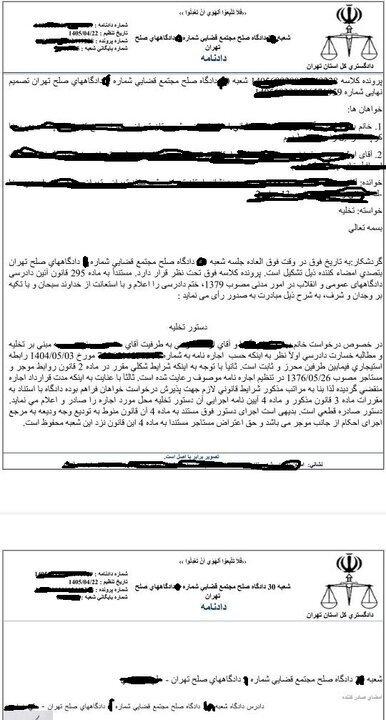 «فلا تتبعوا الهوي ان تعدلوا»
شماره دادنامه :
تاریخ تنظیم : 1405/04/22
شماره پرونده :
شماره بایگانی شعبه :
شعبه دادگاه صلح مجتمع قضایی شماره دادگاههای صلح
تهران
دادنامه
دادگستري کل استان تهران
پرونده کلاسه شعبه دادگاه صلح مجتمع قضایی شماره دادگاههای صلح تهران تصمیم
نهایی شماره
خواهان ها:
1. خانم
2. آقای
خوانده: آقای
خواسته: تخلیه
بسمه تعالي
گردشکار:به تاریخ فوق در وقت فوق العاده جلسه شعبه دادگاه صلح مجتمع قضایی شماره دادگاههای صلح تهران
بتصدي امضاء کننده ذیل تشکیل است. پرونده کلاسه فوق تحت نظر قرار دارد. مستنداً به ماده 295 قانون آئین دادرسی
دادگاههای عمومی و انقلاب در امور مدنی مصوب 1379، ختم دادرسی را اعلام و با استعانت از خداوند سبحان و با تکیه
بر وجدان و شرف، به شرح ذیل مبادرت به صدور رأی می نماید :
دستور تخلیه
در خصوص درخواست خانم و آقای به طرفیت آقای مبنی بر تخلیه
و مطالبه خسارت دادرسی اولاً نظر به اینکه حسب اجاره نامه به شماره مورخ 1404/05/03 رابطه
استیجاری فیمابین طرفین محرز و ثابت است. ثانیاً با توجه به اینکه شرایط شکلی مقرر در ماده 2 قانون روابط موجر و
مستاجر مصوب 1376/05/26 در تنظیم اجاره نامه موصوف رعایت شده است. ثالثاً با عنایت به اینکه مدت قرارداد اجاره
منقضی گردیده لذا بنا به مراتب مذکور شرایط قانونی لازم جهت پذیرش درخواست خواهان فراهم بوده دادگاه با استناد به
مقررات ماده 3 قانون مذکور و ماده 4 آیین نامه اجرایی آن دستور تخلیه محل مورد اجاره را صادر و اعلام می نماید.
دستور صادره قطعی است. بدیهی است اجرای دستور فوق مستند به ماده 4 آن قانون منوط به تودیع وجه ودیعه به مرجع
اجرای احکام از جانب موجر می باشد و حق اعتراض مستاجر مستندا به ماده 4 این قانون نزد این شعبه محفوظ است.
تصویر برابر با اصل است.
نشانی:
«فلا تتبعوا الهوي ان تعدلوا»
شماره دادنامه :
تاریخ تنظیم : 1405/04/22
شماره پرونده :
شماره بایگانی شعبه :
شعبه 30 دادگاه صلح مجتمع قضایی شماره دادگاههای صلح
تهران
دادنامه
دادگستري کل استان تهران
شعبه دادگاه صلح مجتمع قضایی شماره دادگاههای صلح تهران -
امضای صادر کننده
دادرس دادگاه شعبه دادگاه صلح مجتمع قضایی شماره دادگاههای صلح تهران -